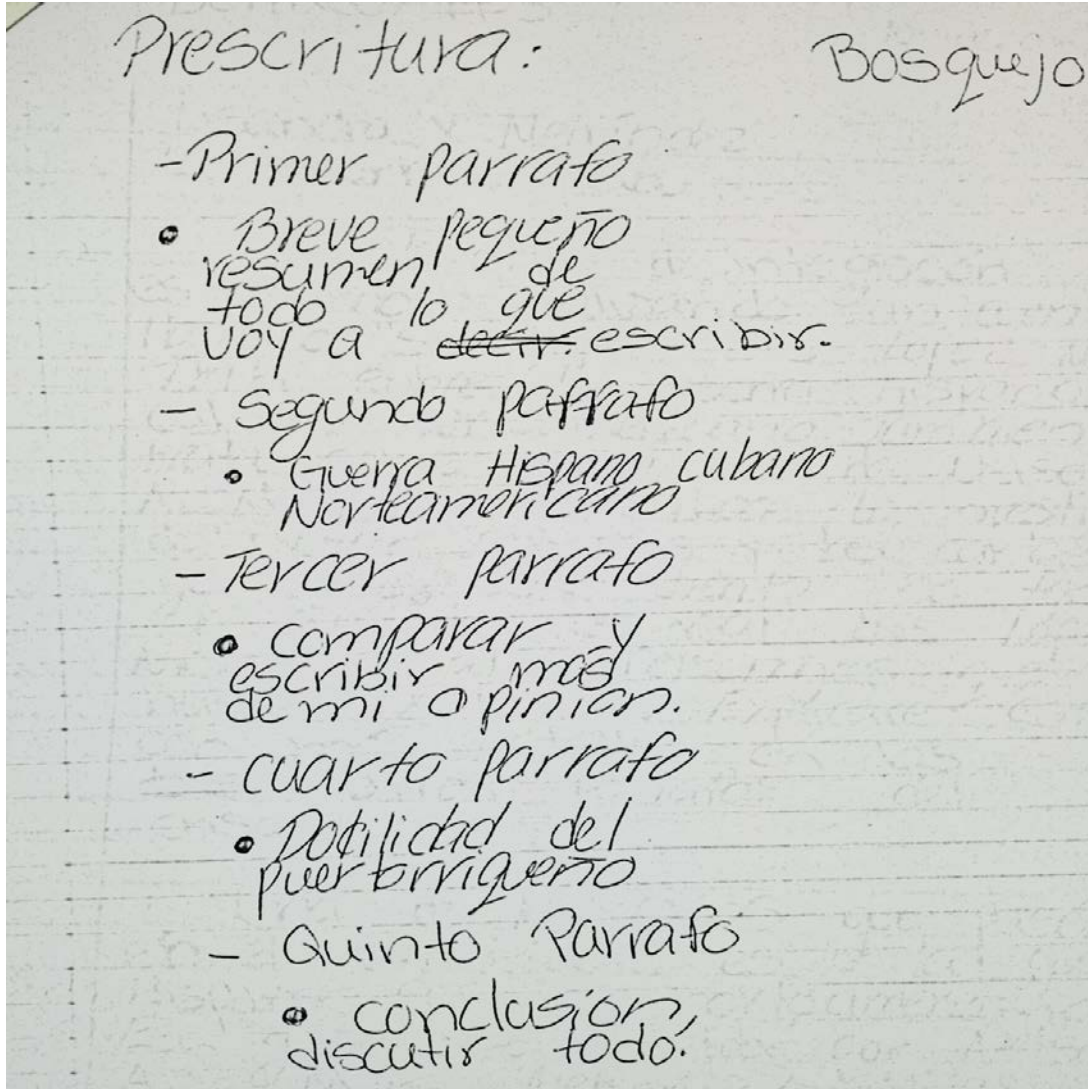 Prescritura: Bosquejo
-Primer parrafo
• Breve pequeño
resumen de
todo lo que
voy a decir. escribir.
- Segundo parrafo
• Guerra Hispano cubano
Norteamericano
- Tercer parrafo
• comparar y
escribir más
de mi opinión.
- cuarto parrafo
• Docilidad del
puertorriqueño
- Quinto Parrafo
• conclusión,
discutir todo.